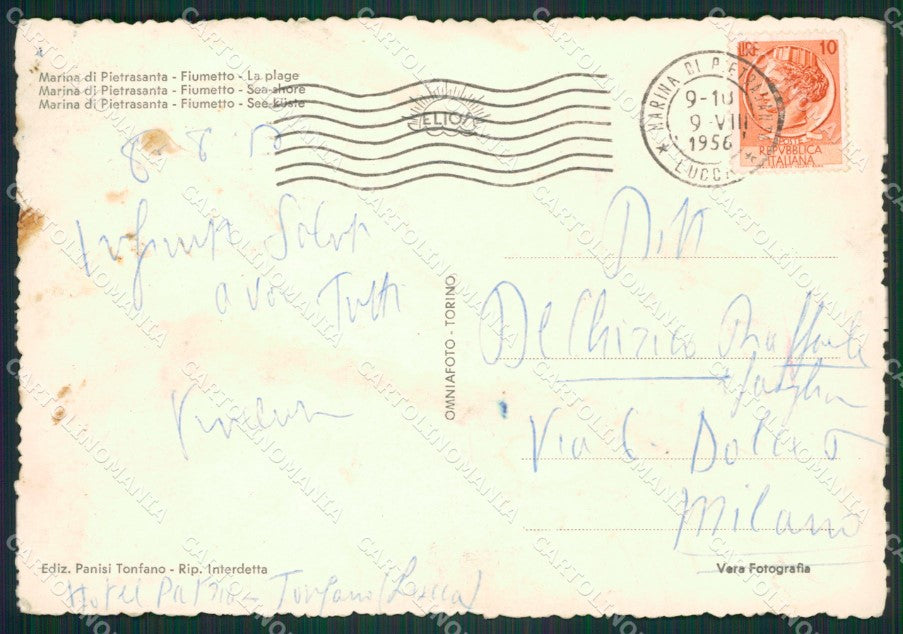 Marina di Pietrasanta - Fiumetto - La plage
Marina di Pietrasanta - Fiumetto - Sea shore
Marina di Pietrasanta - Fiumetto - See küste
ELIOS
MARINA DI PIETRASANTA
9-10
9·VIII
1956
* LUCCA *
LIRE 10
POSTE
REPVBBLICA
ITALIANA
8-8
a voi Tutti
OMNIAFOTO - TORINO
Ditt
De Chirico Raffaele
famiglia
Via C. Dolci
Milano
Ediz. Panisi Tonfano - Rip. Interdetta
Vera Fotografia
Hotel Tonfano (Lucca)
CARTOLINOMANIA